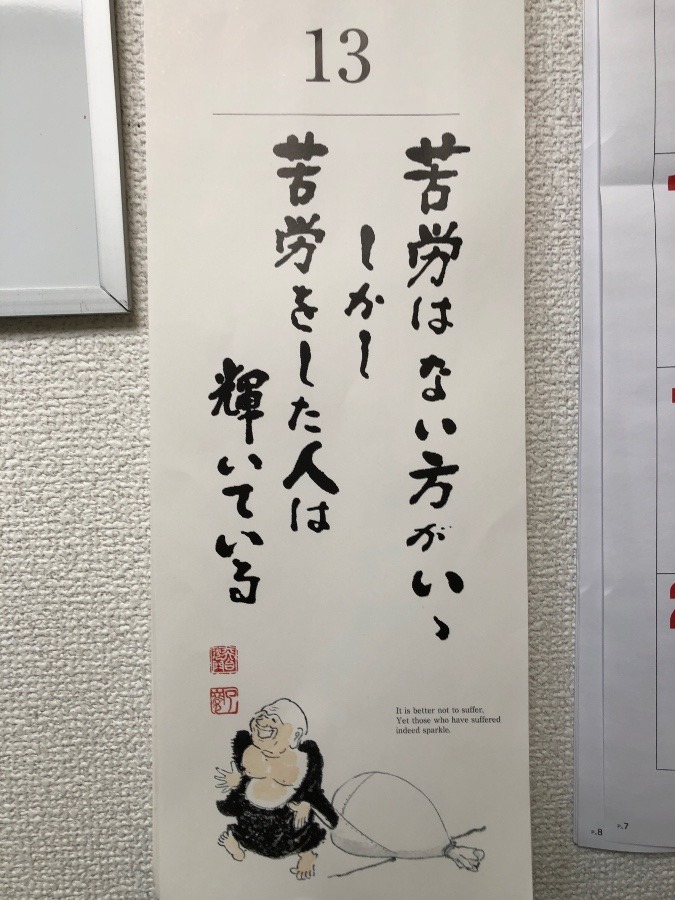 13
苦労はない方がいゝ
しかし
苦労をした人は
輝いている
It is better not to suffer.
Yet those who have suffered
indeed sparkle.
P.8
P.7